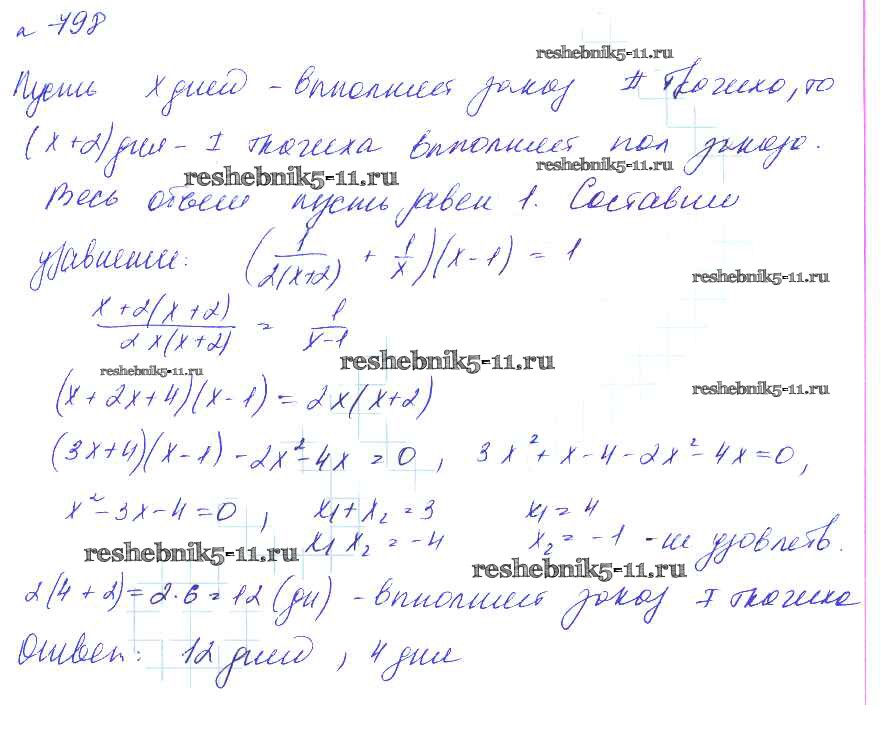 n 798
reshebnik5-11.ru
Пусть x дней - выполнит заказ II ткачиха, то
(x+2) дня - I ткачиха выполнит пол заказа.
reshebnik5-11.ru
reshebnik5-11.ru
Весь объем пусть равен 1. Составим
уравнение: (1/2(x+2) + 1/x)(x-1) = 1
reshebnik5-11.ru
x+2(x+2)/2x(x+2) = 1/x-1
reshebnik5-11.ru
reshebnik5-11.ru
reshebnik5-11.ru
(x+2x+4)(x-1) = 2x(x+2)
(3x+4)(x-1) - 2x²-4x = 0, 3x²+x-4-2x²-4x=0,
x²-3x-4=0, x₁+x₂=3 x₁=4
x₁x₂=-4 x₂=-1 - не удовлетв.
reshebnik5-11.ru
reshebnik5-11.ru
2(4+2)=2·6=12 (дн) - выполнит заказ I ткачиха
Ответ: 12 дней, 4 дня